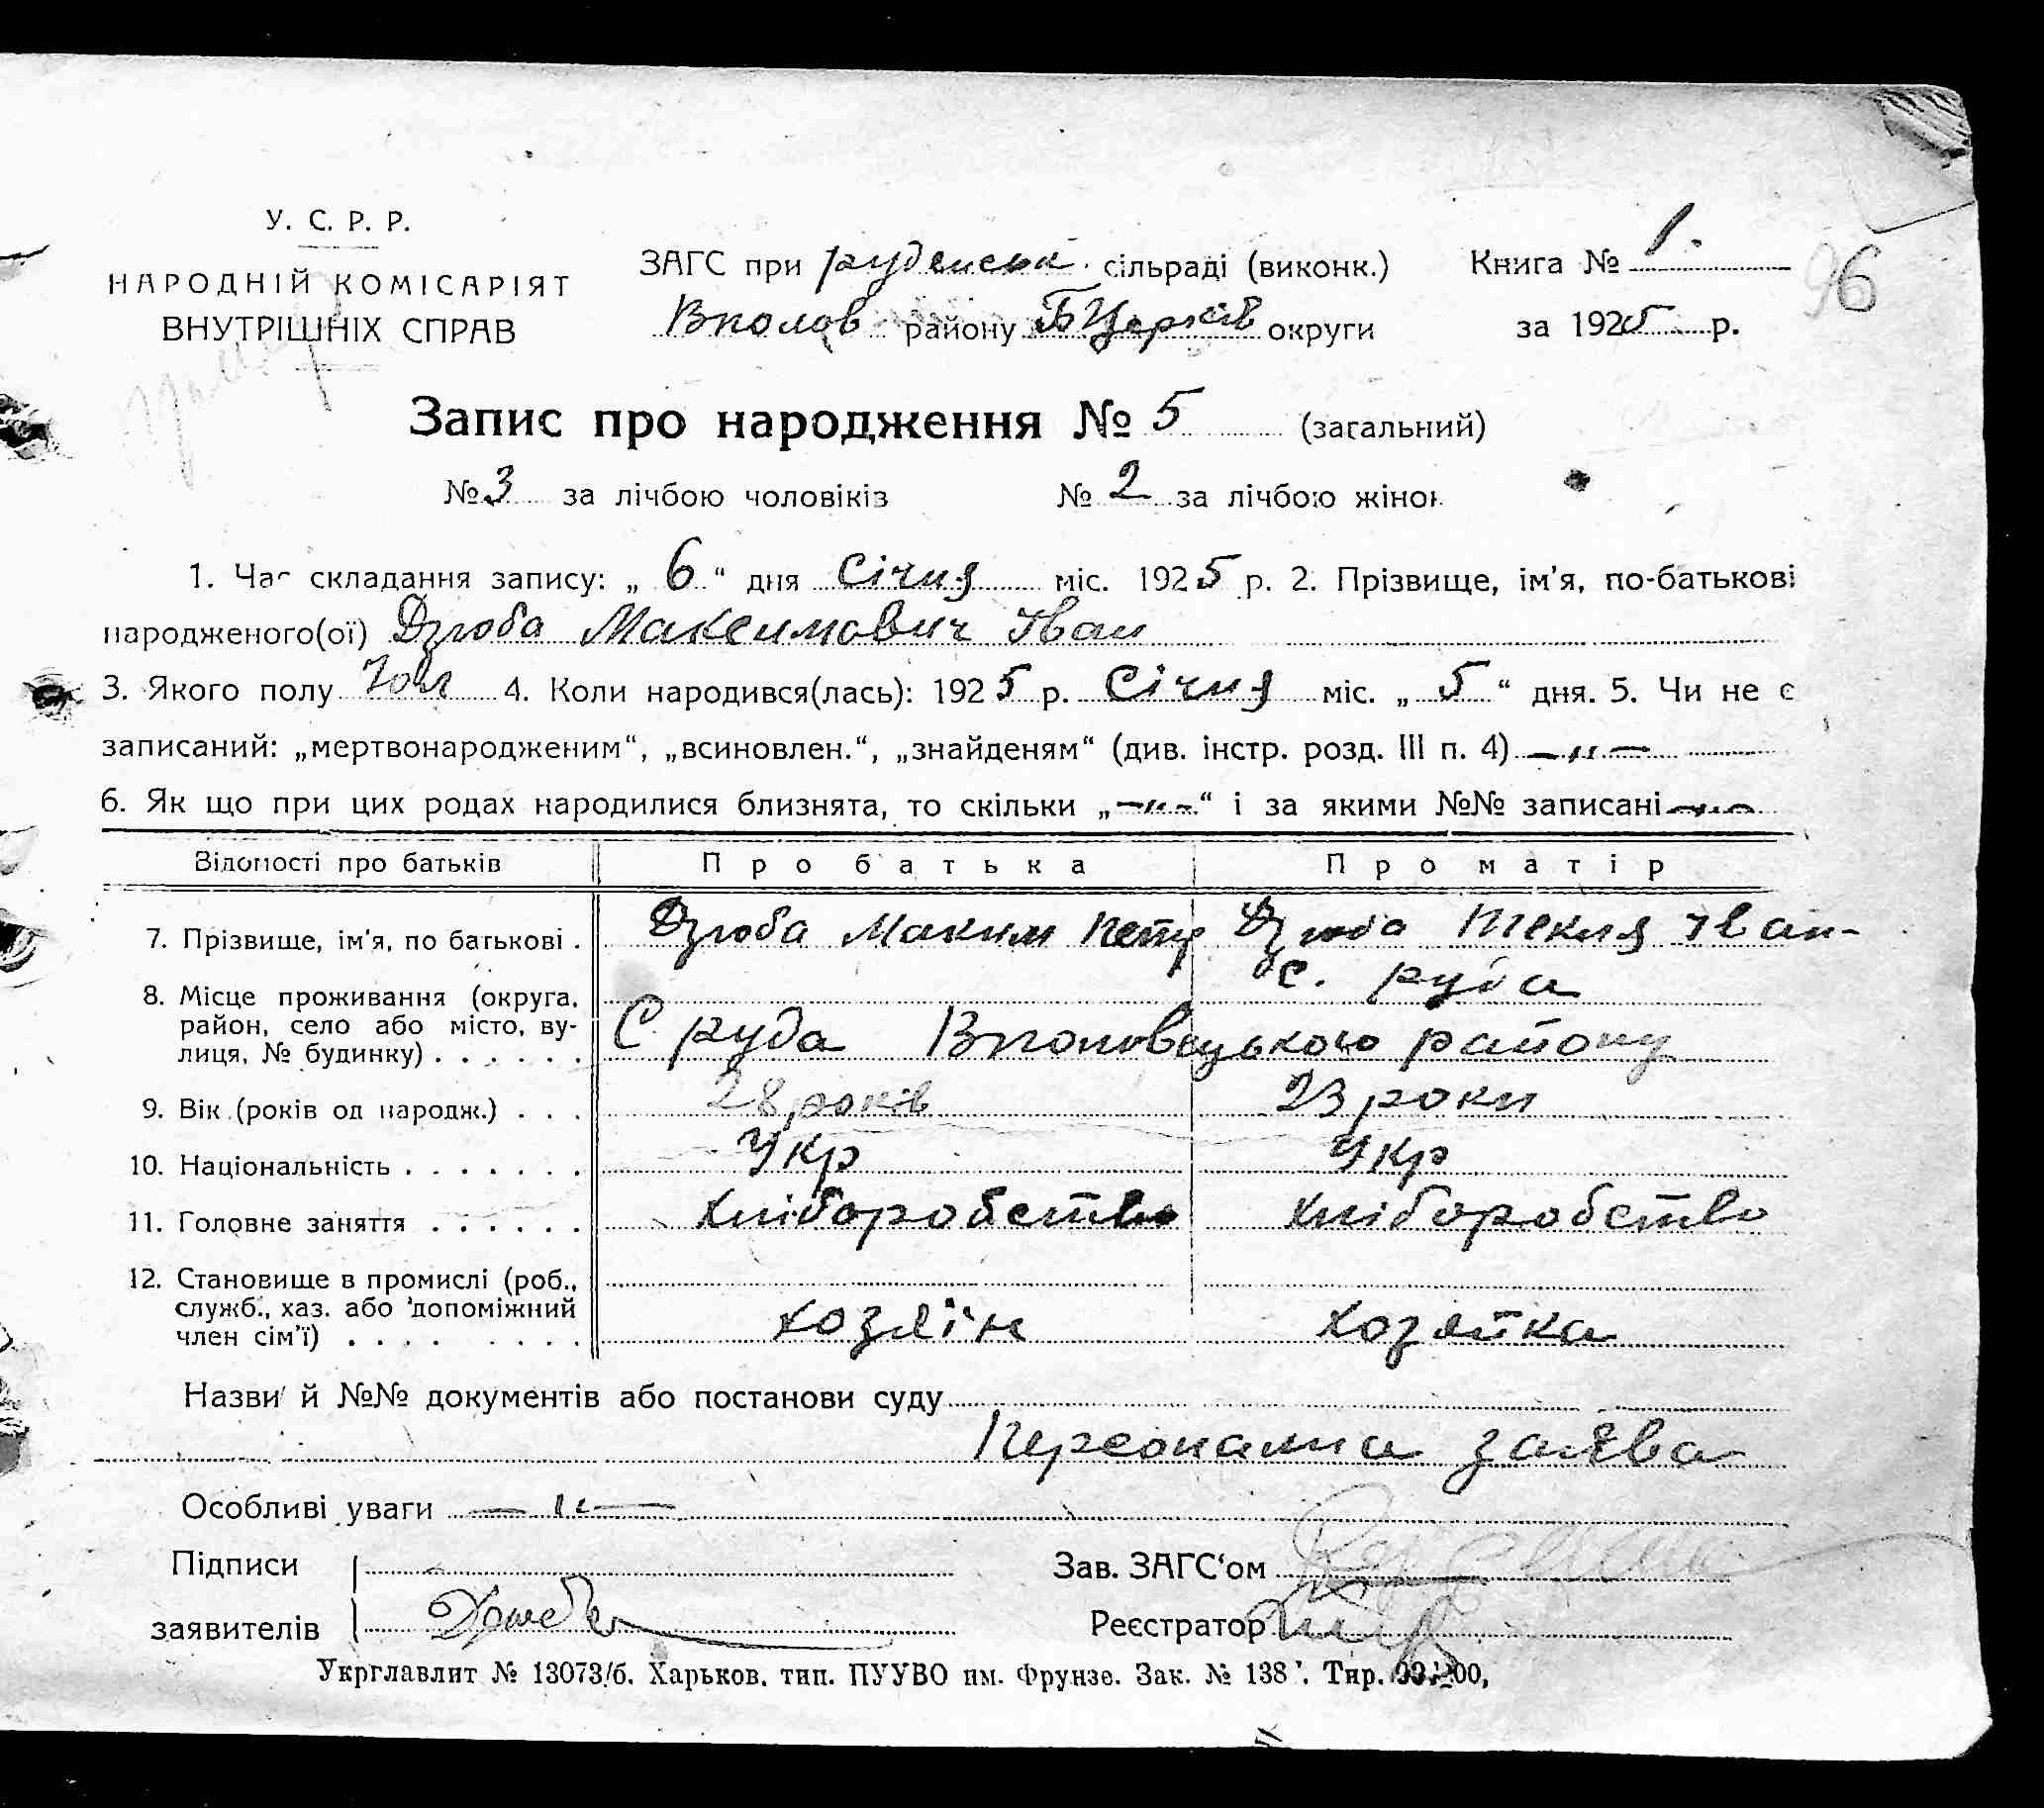 У. С. Р. Р.
НАРОДНІЙ КОМІСАРІЯТ
ВНУТРІШНІХ СПРАВ
ЗАГС при руденськ. сільраді (виконк.)
Вполов району БЦерків округи
Книга № 1.
за 1925 р.
96
Запис про народження № 5 (загальний)
№ 3 за лічбою чоловіків № 2 за лічбою жінок
1. Час складання запису: „ 6 “ дня Січня міс. 1925 р. 2. Прізвище, ім'я, по-батькові
народженого(ої) Дзюба Максимович Іван
3. Якого полу Чол 4. Коли народився(лась): 1925 р. Січня міс. „ 5 “ дня. 5. Чи не є
записаний: „мертвонародженим“, „всиновлен.“, „знайденям“ (див. інстр. розд. III п. 4) —„—
6. Як що при цих родах народилися близнята, то скільки „—„—“ і за якими №№ записані —„—
Відомості про батьків Про батька Про матір
7. Прізвище, ім'я, по батькові . Дзюба Максим Петр Дзюба Текля Іван-
8. Місце проживання (округа, с. руда
район, село або місто, ву- С руда Вполовецького району
лиця, № будинку) . . . . . .
9. Вік (років од народж.) . . . 28 років 23 роки
10. Національність . . . . . . . Укр Укр
11. Головне заняття . . . . . . Хліборобство Хліборобство
12. Становище в промислі (роб.,
служб., хаз. або допоміжний
член сім'ї) . . . . . . . . Хозяїн Хозяйка
Назви й №№ документів або постанови суду
Персонална заява
Особливі уваги —„—
Підписи Зав. ЗАГС‘ом
заявителів Дзюба Реєстратор
Укрглавлит № 13073/б. Харьков. тип. ПУУВО им. Фрунзе. Зак. № 138 . Тир.